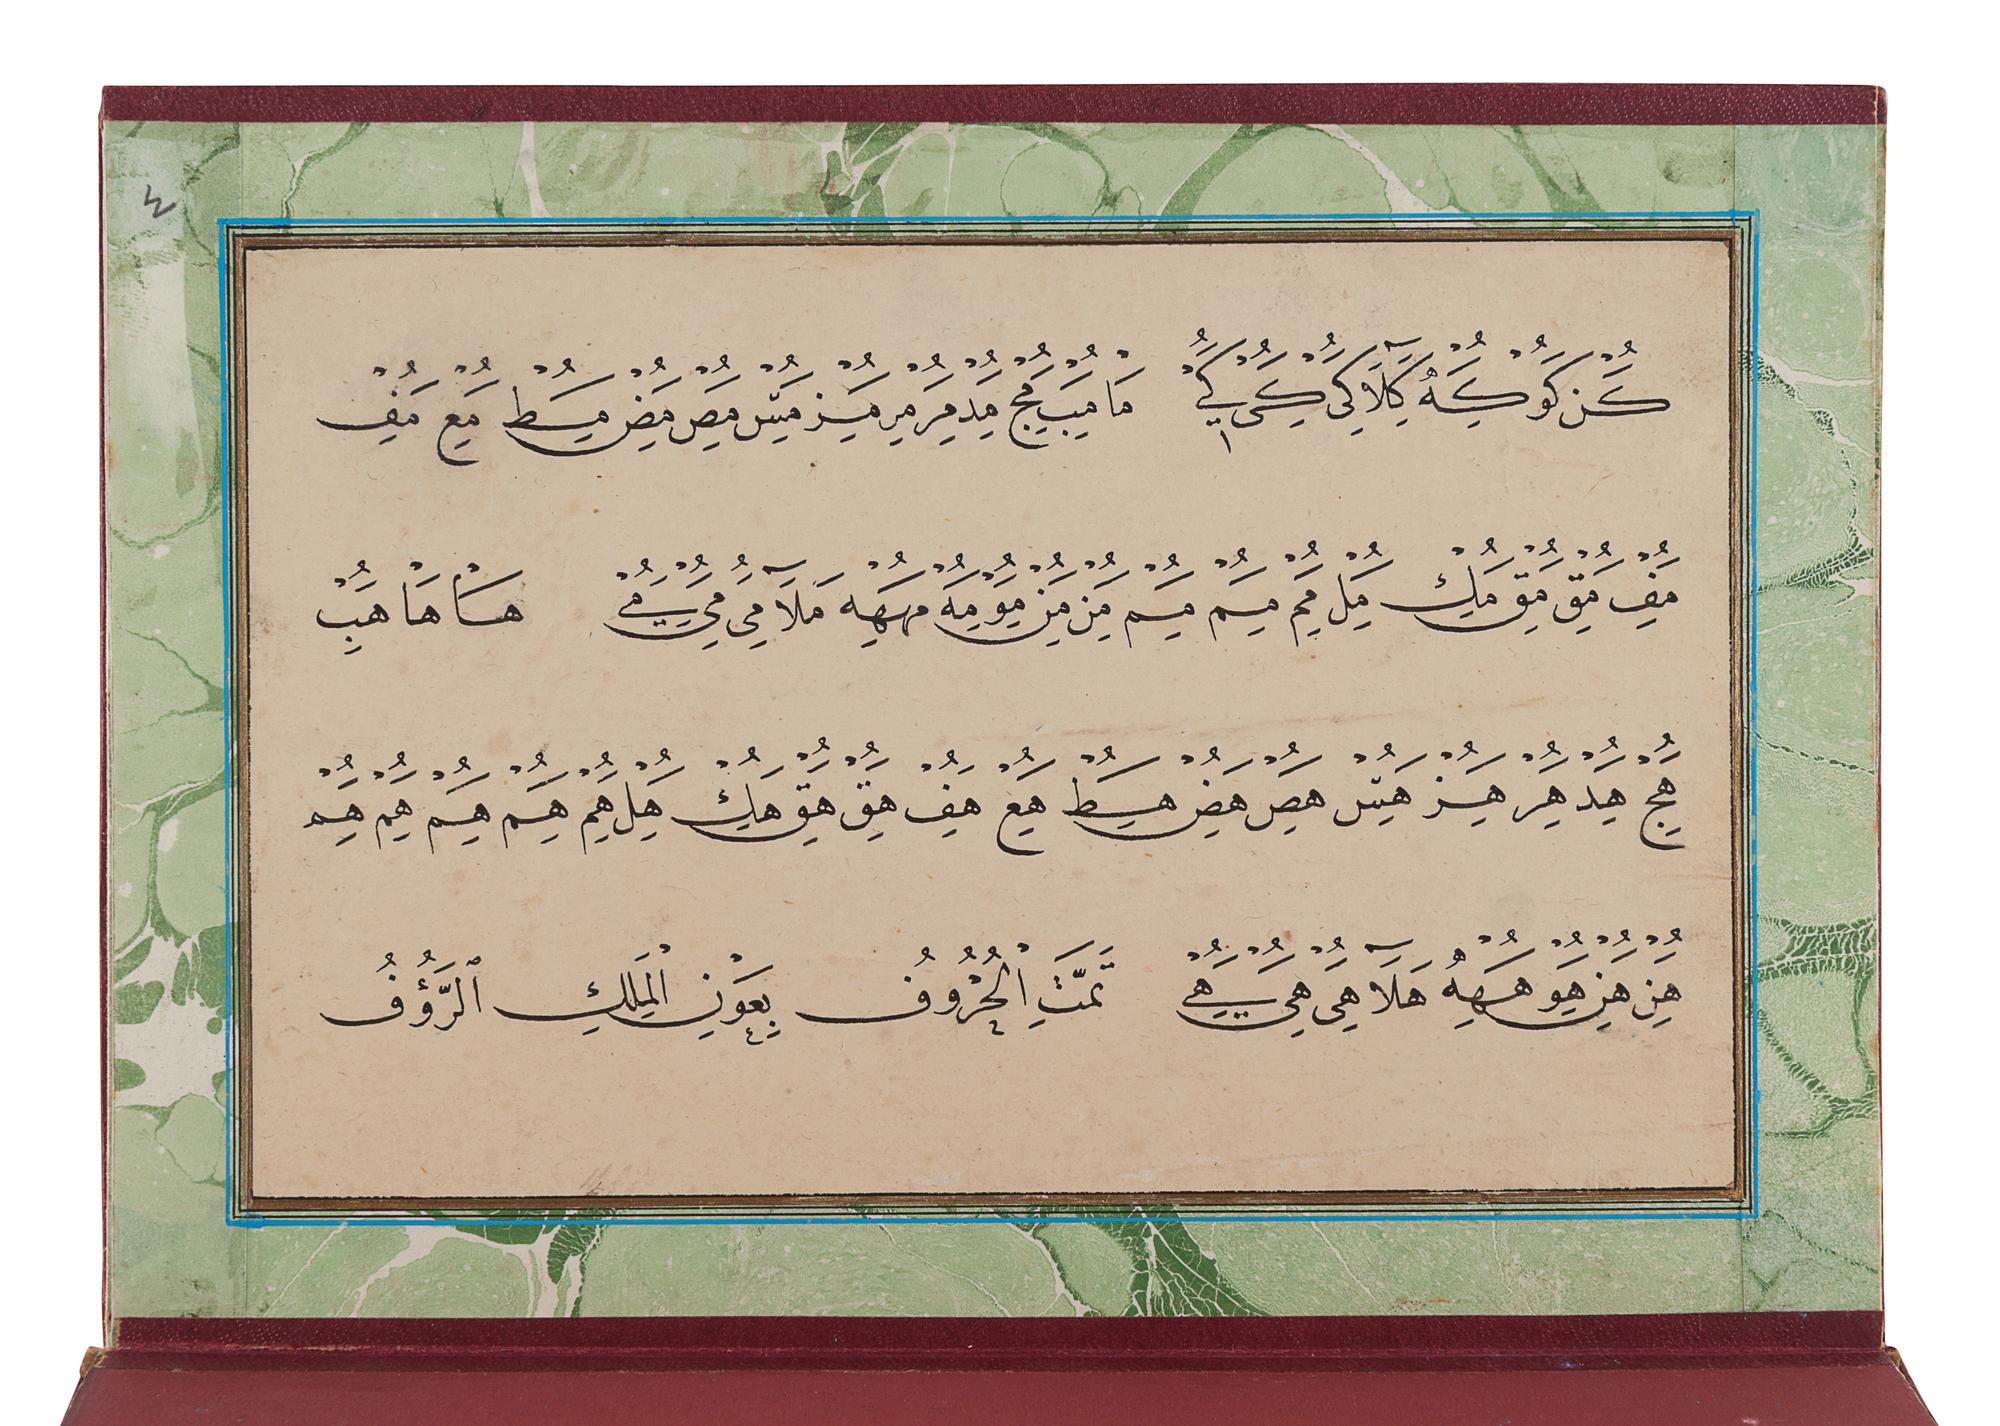 كن كو كه كلا كى كى كے ما مب مج مد مر مر مز مس مص مض مط مع مف
مف مق مق مك مل مم مم مم من من مو مه مهه ملا مى مى مے ها ها هب
هج هد هر هز هس هص هض هط هع هف هق هق هك هل هم هم هم هم هم
هن هن هو هه هلا هى هى هے تَمَّتِ الْحُرُوفُ بِعَوْنِ الْمَلِكِ الرَّؤُفُ